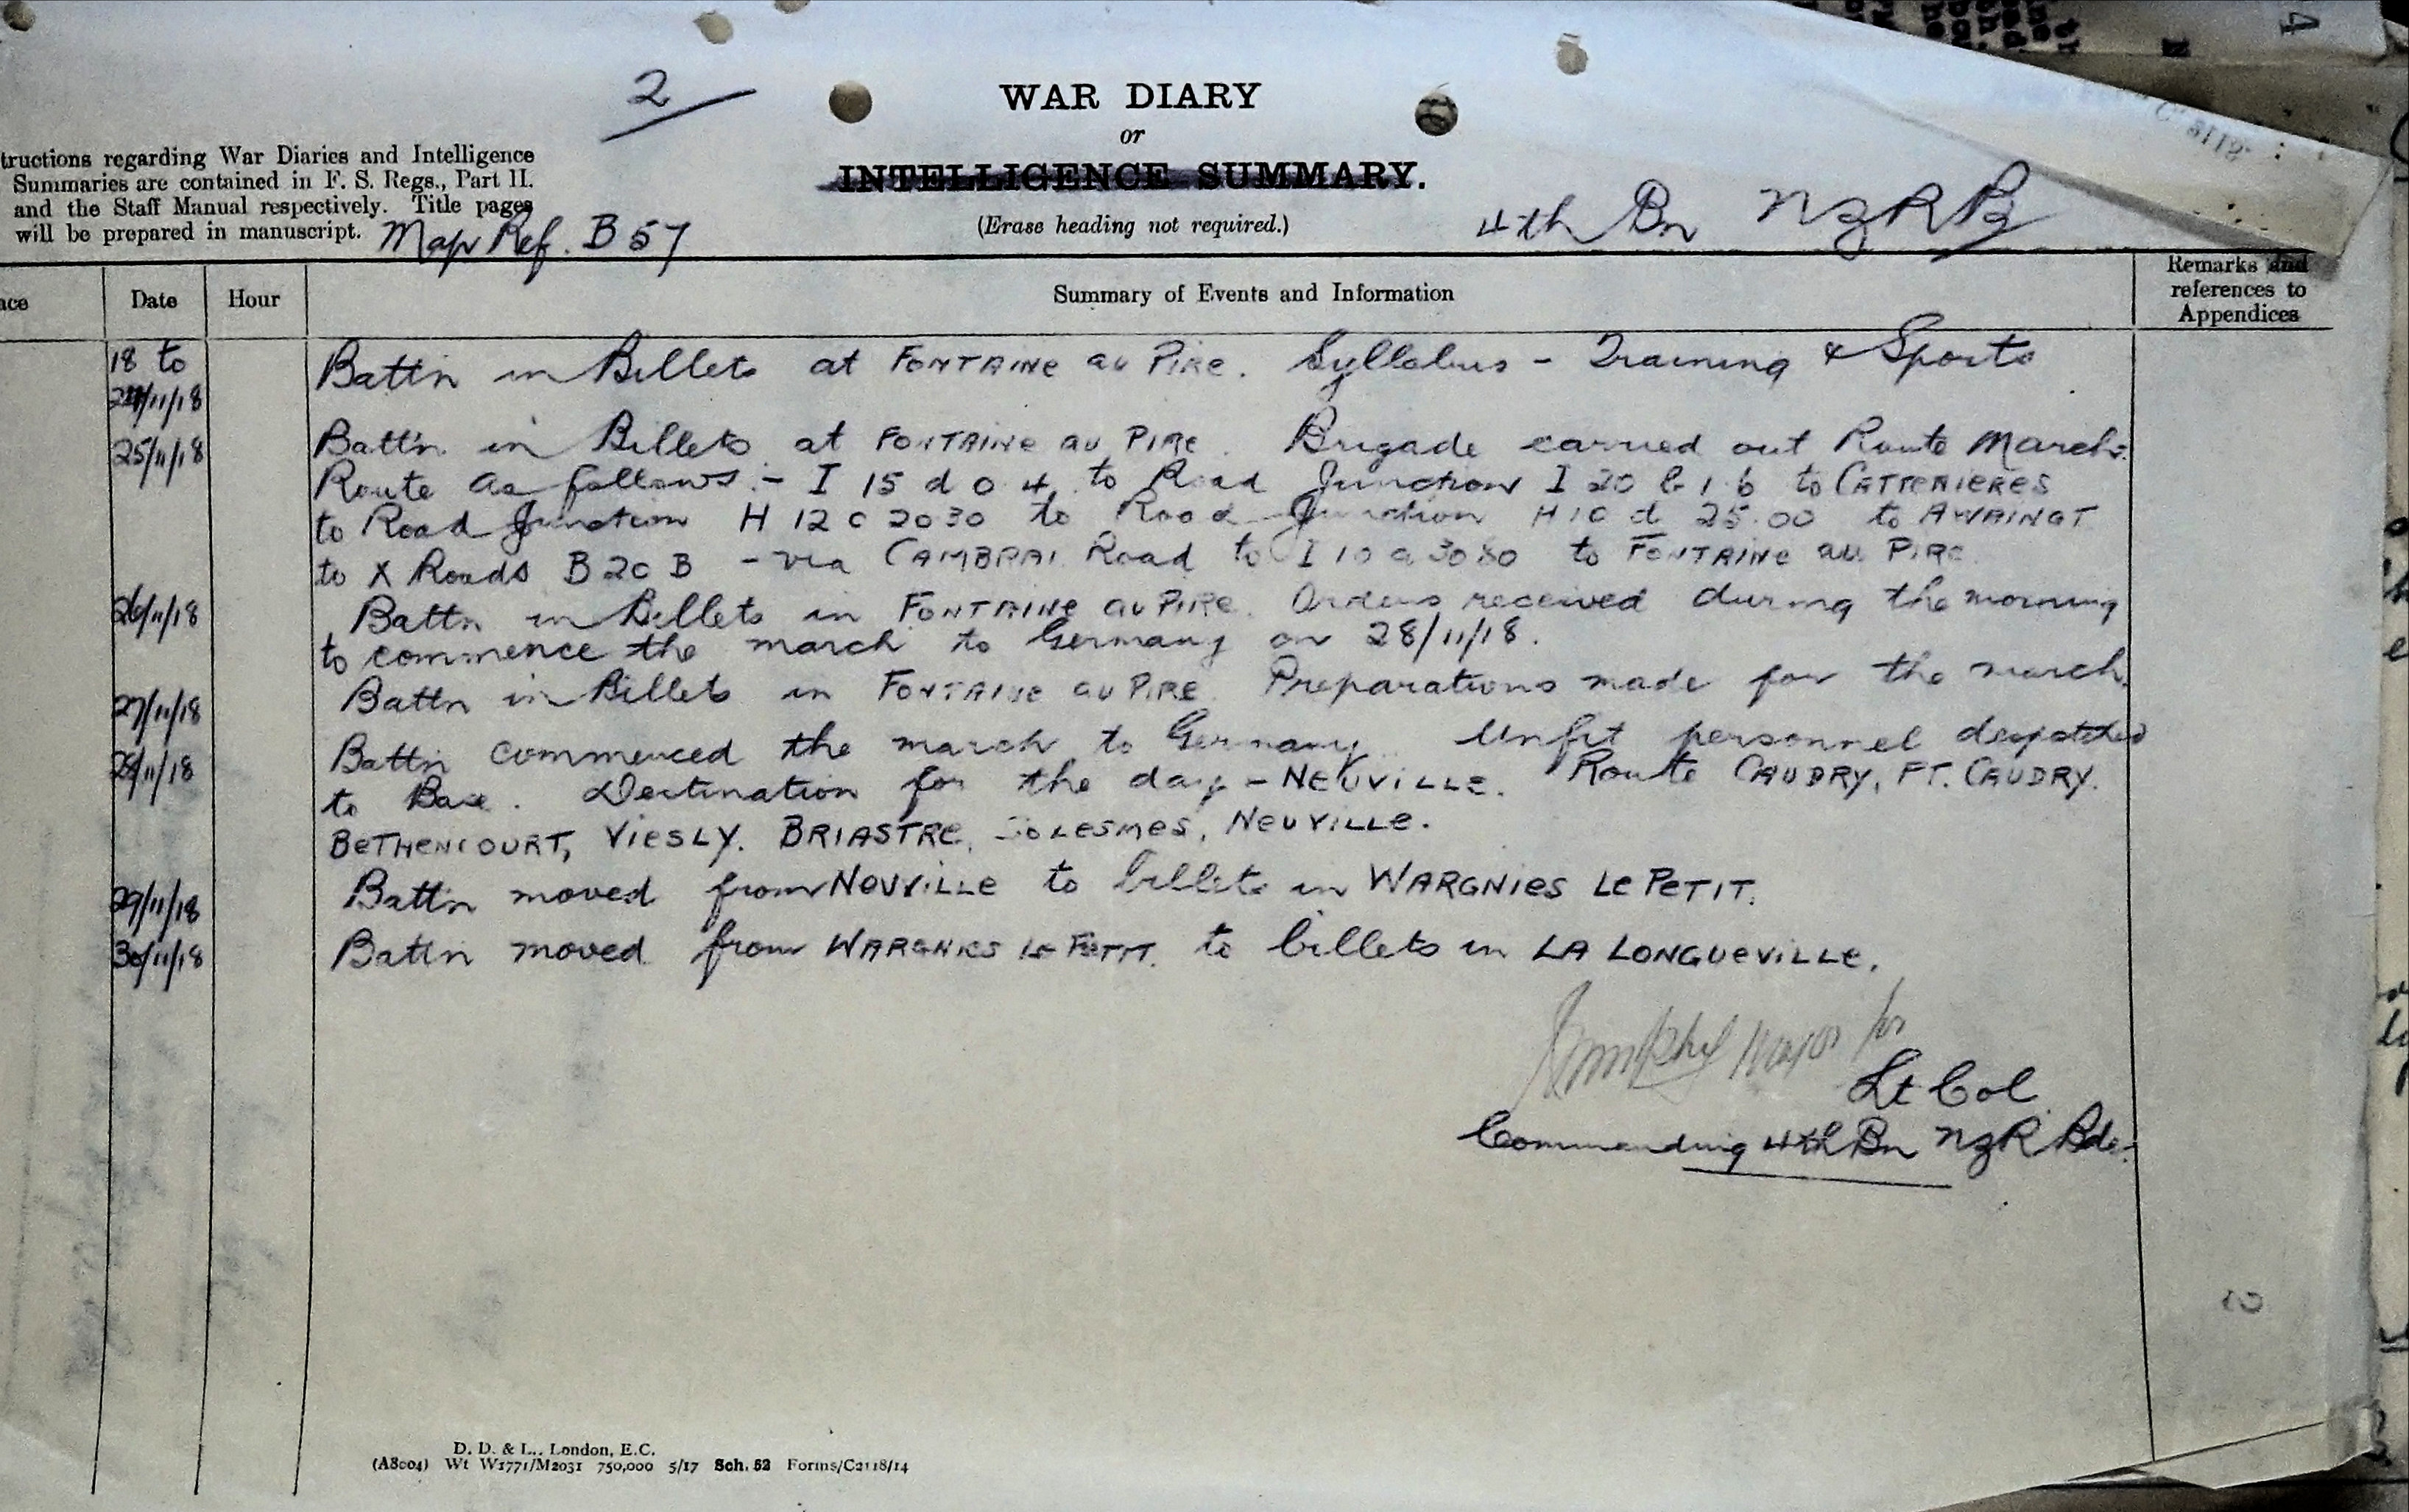 2
WAR DIARY
or
INTELLIGENCE SUMMARY.
(Erase heading not required.)
tructions regarding War Diaries and Intelligence
Summaries are contained in F. S. Regs., Part II.
and the Staff Manual respectively. Title pages
will be prepared in manuscript.
Map Ref. B 57
4th Bn NZRB
Date Hour Summary of Events and Information Remarks and
references to
Appendices
18 to Battn in Billets at FONTAINE au PIRE. Syllabus - Training & Sports
/11/18
25/11/18 Battn in Billets at FONTAINE au PIRE. Brigade carried out Route March.
Route as follows:- I 15 d 0 4 to Road Junction I 20 b 1.6 to CATTENIERES
to Road Junction H 12 c 2030 to Road Junction H 10 d 25.00 to AWAINGT
to X Roads B 20 B - via CAMBRAI Road to I 10 a 3080 to FONTAINE au PIRE
26/11/18 Battn in Billets in FONTAINE au PIRE. Orders received during the morning
to commence the march to Germany on 28/11/18.
27/11/18 Battn in Billets in FONTAINE au PIRE. Preparations made for the march.
28/11/18 Battn commenced the march to Germany. Unfit personnel despatched
to Base. Destination for the day - NEUVILLE. Route CAUDRY, FT. CAUDRY.
BETHENCOURT, VIESLY. BRIASTRE, SOLESMES, NEUVILLE.
29/11/18 Battn moved from NEUVILLE to billets in WARGNIES LE PETIT.
30/11/18 Battn moved from WARGNIES LE PETIT. to billets in LA LONGUEVILLE.
Major for
Lt Col
Commanding 4th Bn NZR Bde.
D. D. & L., London, E.C.
(A8004) Wt W1771/M2031 750,000 5/17 Sch. 52 Forms/C2118/14